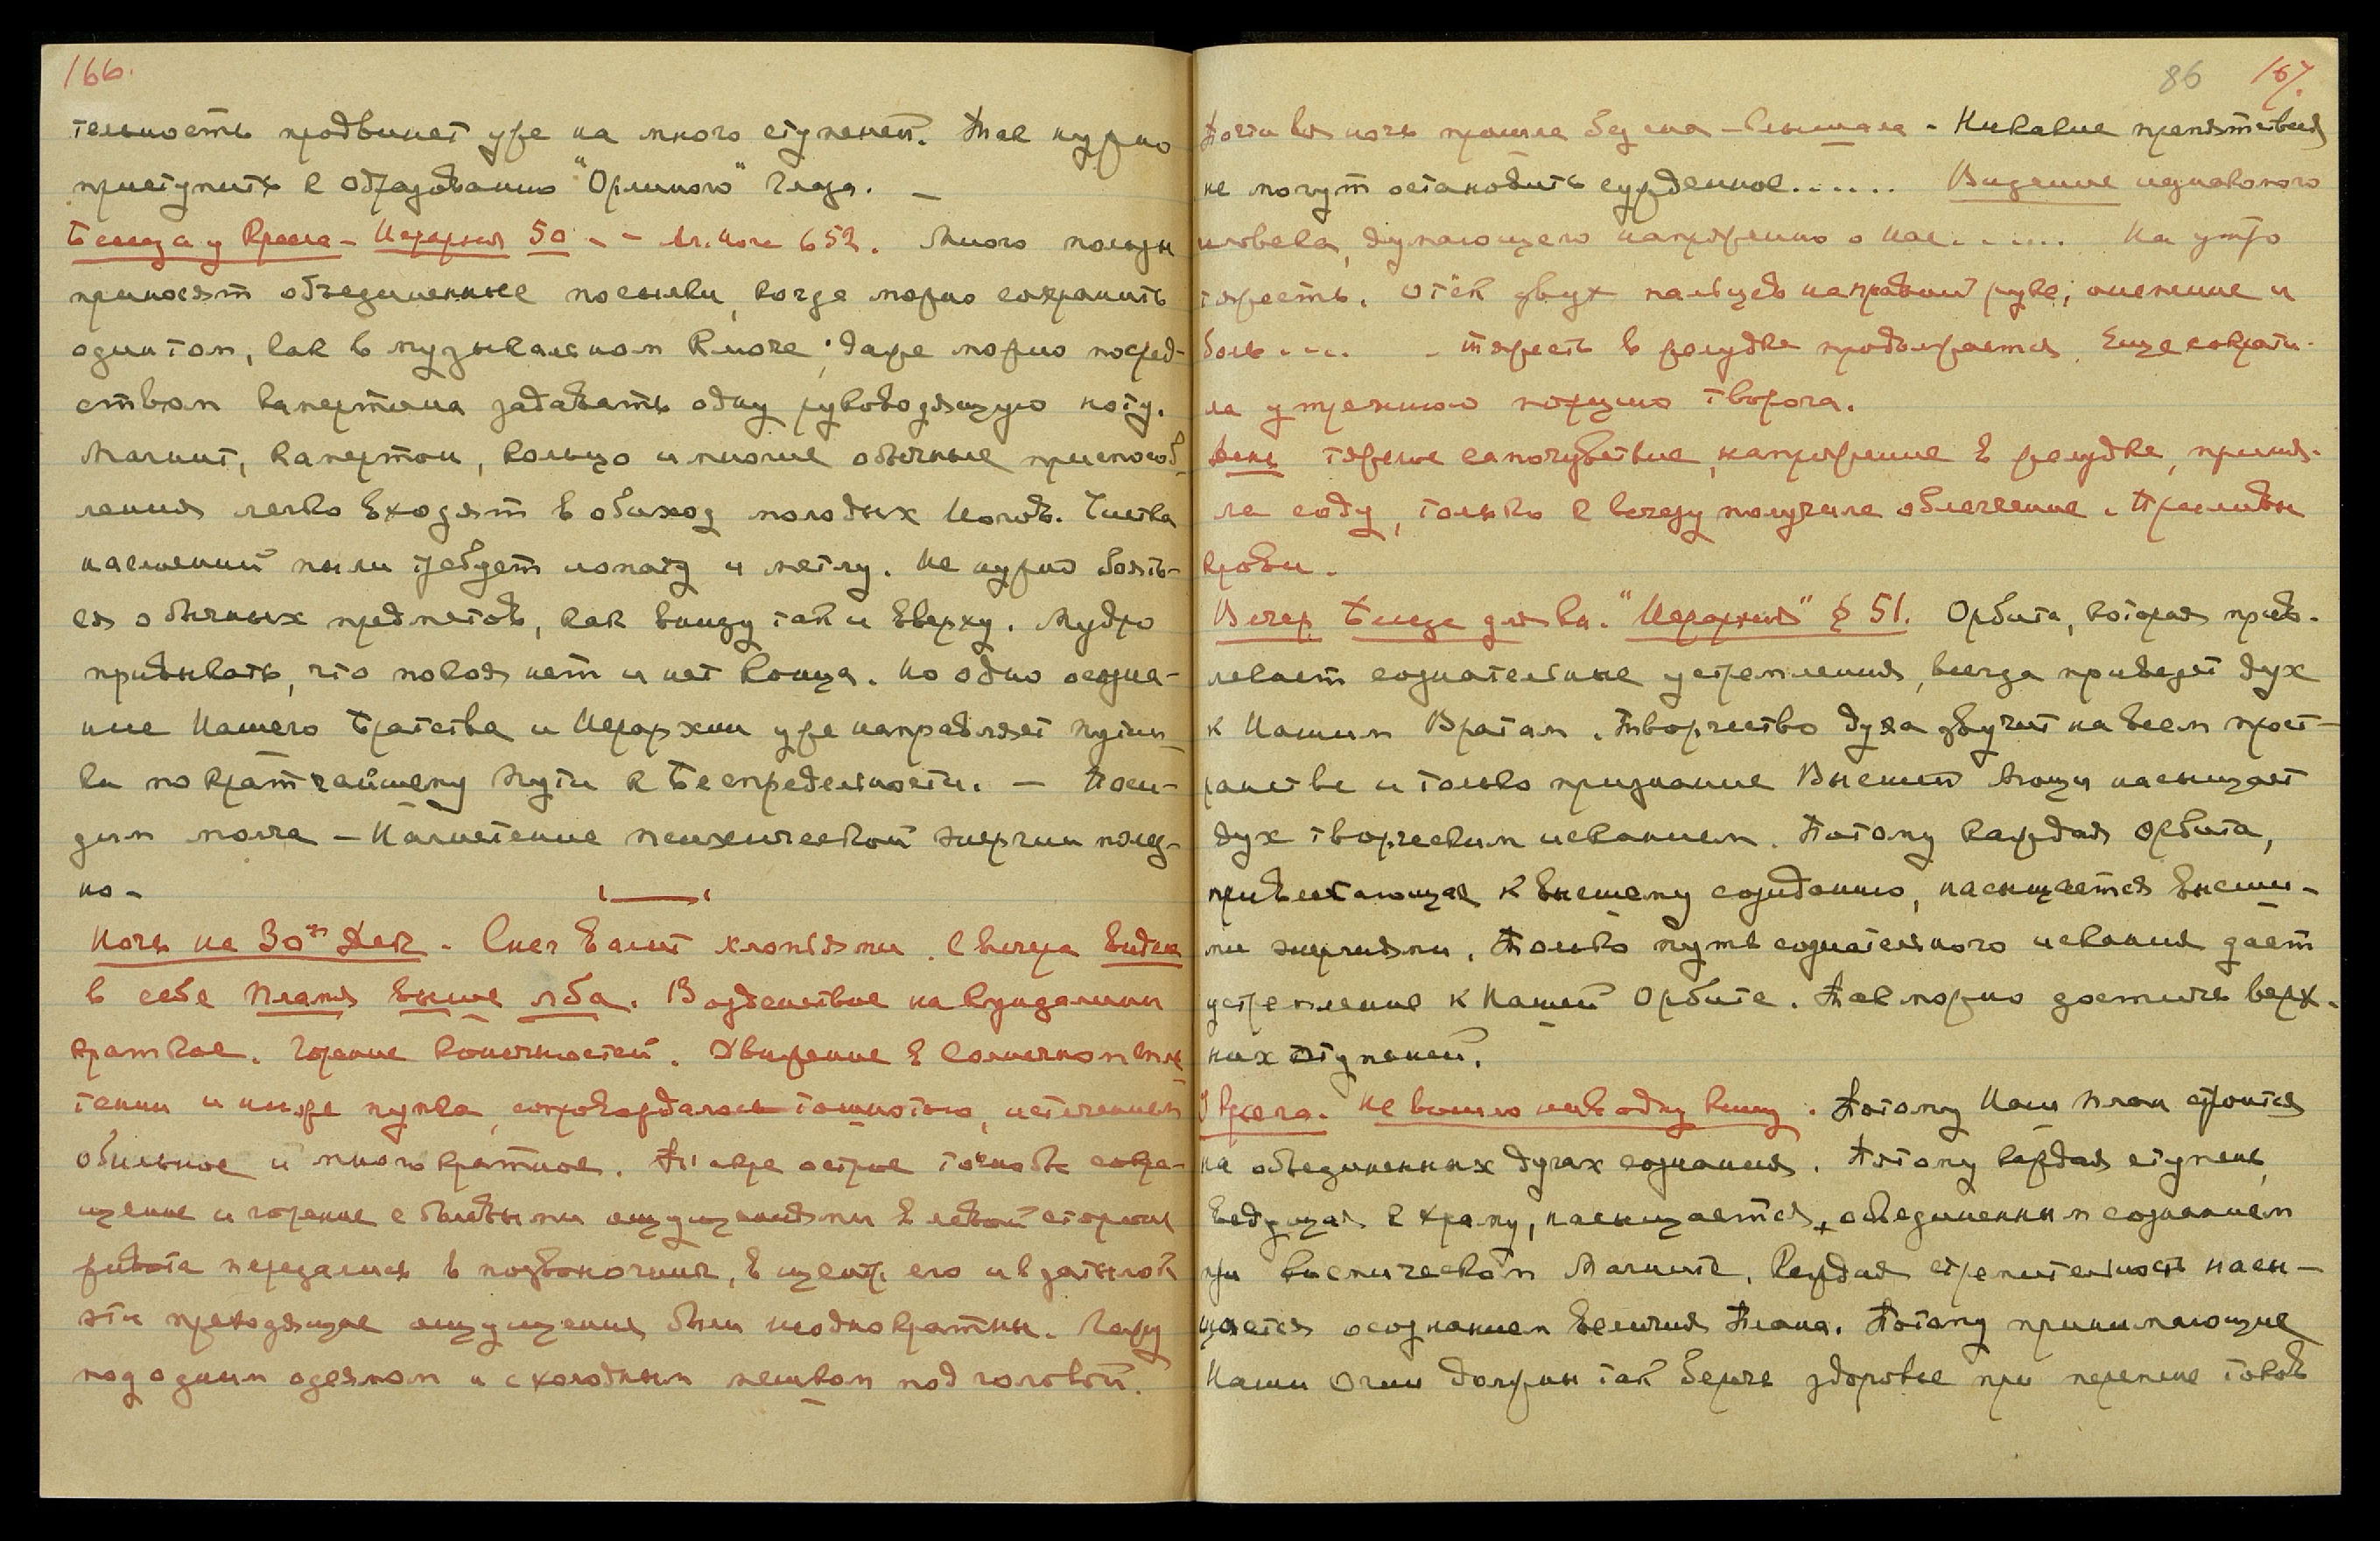 166.
тельность продвинет уже на много ступеней. Так нужно
приступить к образованию "Орлиного" глаза. –
Беседа у Кресла – Иерархия 50 – – Аг. Иога 652. Много пользы
приносят объединенные посылки, когда можно сохранить
один тон, как в музыкальном ключе; даже можно посред-
ством камертона задавать одну руководящую ноту.
Магнит, камертон, кольцо и многие обычные приспособ-
ления легко входят в обиход молодых Иогов. Чистка
наслоений пыли требует лопату и метлу. Не нужно боять-
ся обычных предметов, как внизу так и вверху. Мудро
привыкать, что покоя нет и нет конца. Но одно осозна-
ние Нашего Братства и Иерархии уже направляет путни-
ка по кратчайшему пути к Беспредельности. – Поси-
дим молча – Нагнетение психической энергии полез-
но –
Ночь на 30ое Дек. – Снег валит хлопьями. С вечера видела
в себе Пламя выше лба. Воздействие на Кундалини
краткое. Горение конечностей. Движение в солнечном спле-
тении и ниже пупка, сопровождалось тошнотою, истечением
обильное и многократное. Также острое точковое сокра-
щение и горение с болевыми ощущениями в левой стороне
живота передались в позвоночник, в центр его и в затылок
эти преходящие ощущения были неоднократны. Лежу
под одним одеялом и с холодным мешком под головой.
86 167.
Почти вся ночь прошла без сна – Слышала – Никакие препятствия
не могут остановить сужденное...... Видение незнакомого
человека, думающего напряженно о нас...... На утро
тяжесть. отёк двух пальцев на правой руке; онемение и
боль.... – тяжесть в желудке продолжается. Еще сократи-
ла утреннюю порцию творога.
День тяжелое самочувствие, напряжение в желудке, приня-
ла соду, только к вечеру получила облегчение. Приливы
крови.
Вечер Беседа для кн. "Иерархия" § 51. Орбита, которая прив-
лекает сознательные устремления, всегда приведет дух
к Нашим Вратам. Творчество духа звучит на всем прост-
ранстве и только признание Высшей Мощи насыщает
дух творческим исканием. Потому каждая орбита,
привлекающая к высшему созиданию, насыщается высши-
ми энергиями. Только путь сознательного искания дает
устремление к Нашей Орбите. Так можно достичь верх-
них ступеней.
У Кресла. Не вошло ни в одну книгу. Потому Наш план строится
на объединенных духах сознания. Потому каждая ступень
ведущая к храму, насыщается, объединенным сознанием
при космическом Магните. Каждая стремительность насы-
щается осознанием величия Плана. Потому принимающие
Наши Огни должны так беречь здоровье при перемене токов